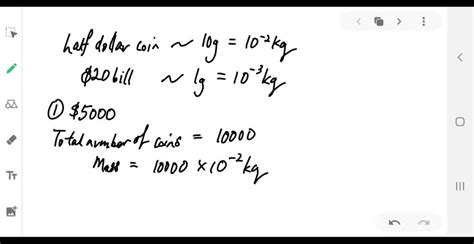 half dollar coin ~ 10g = 10⁻²kg
$20 bill ~ 1g = 10⁻³kg
① $5000
Total number of coins = 10000
Mass = 10000 × 10⁻²kg
TT